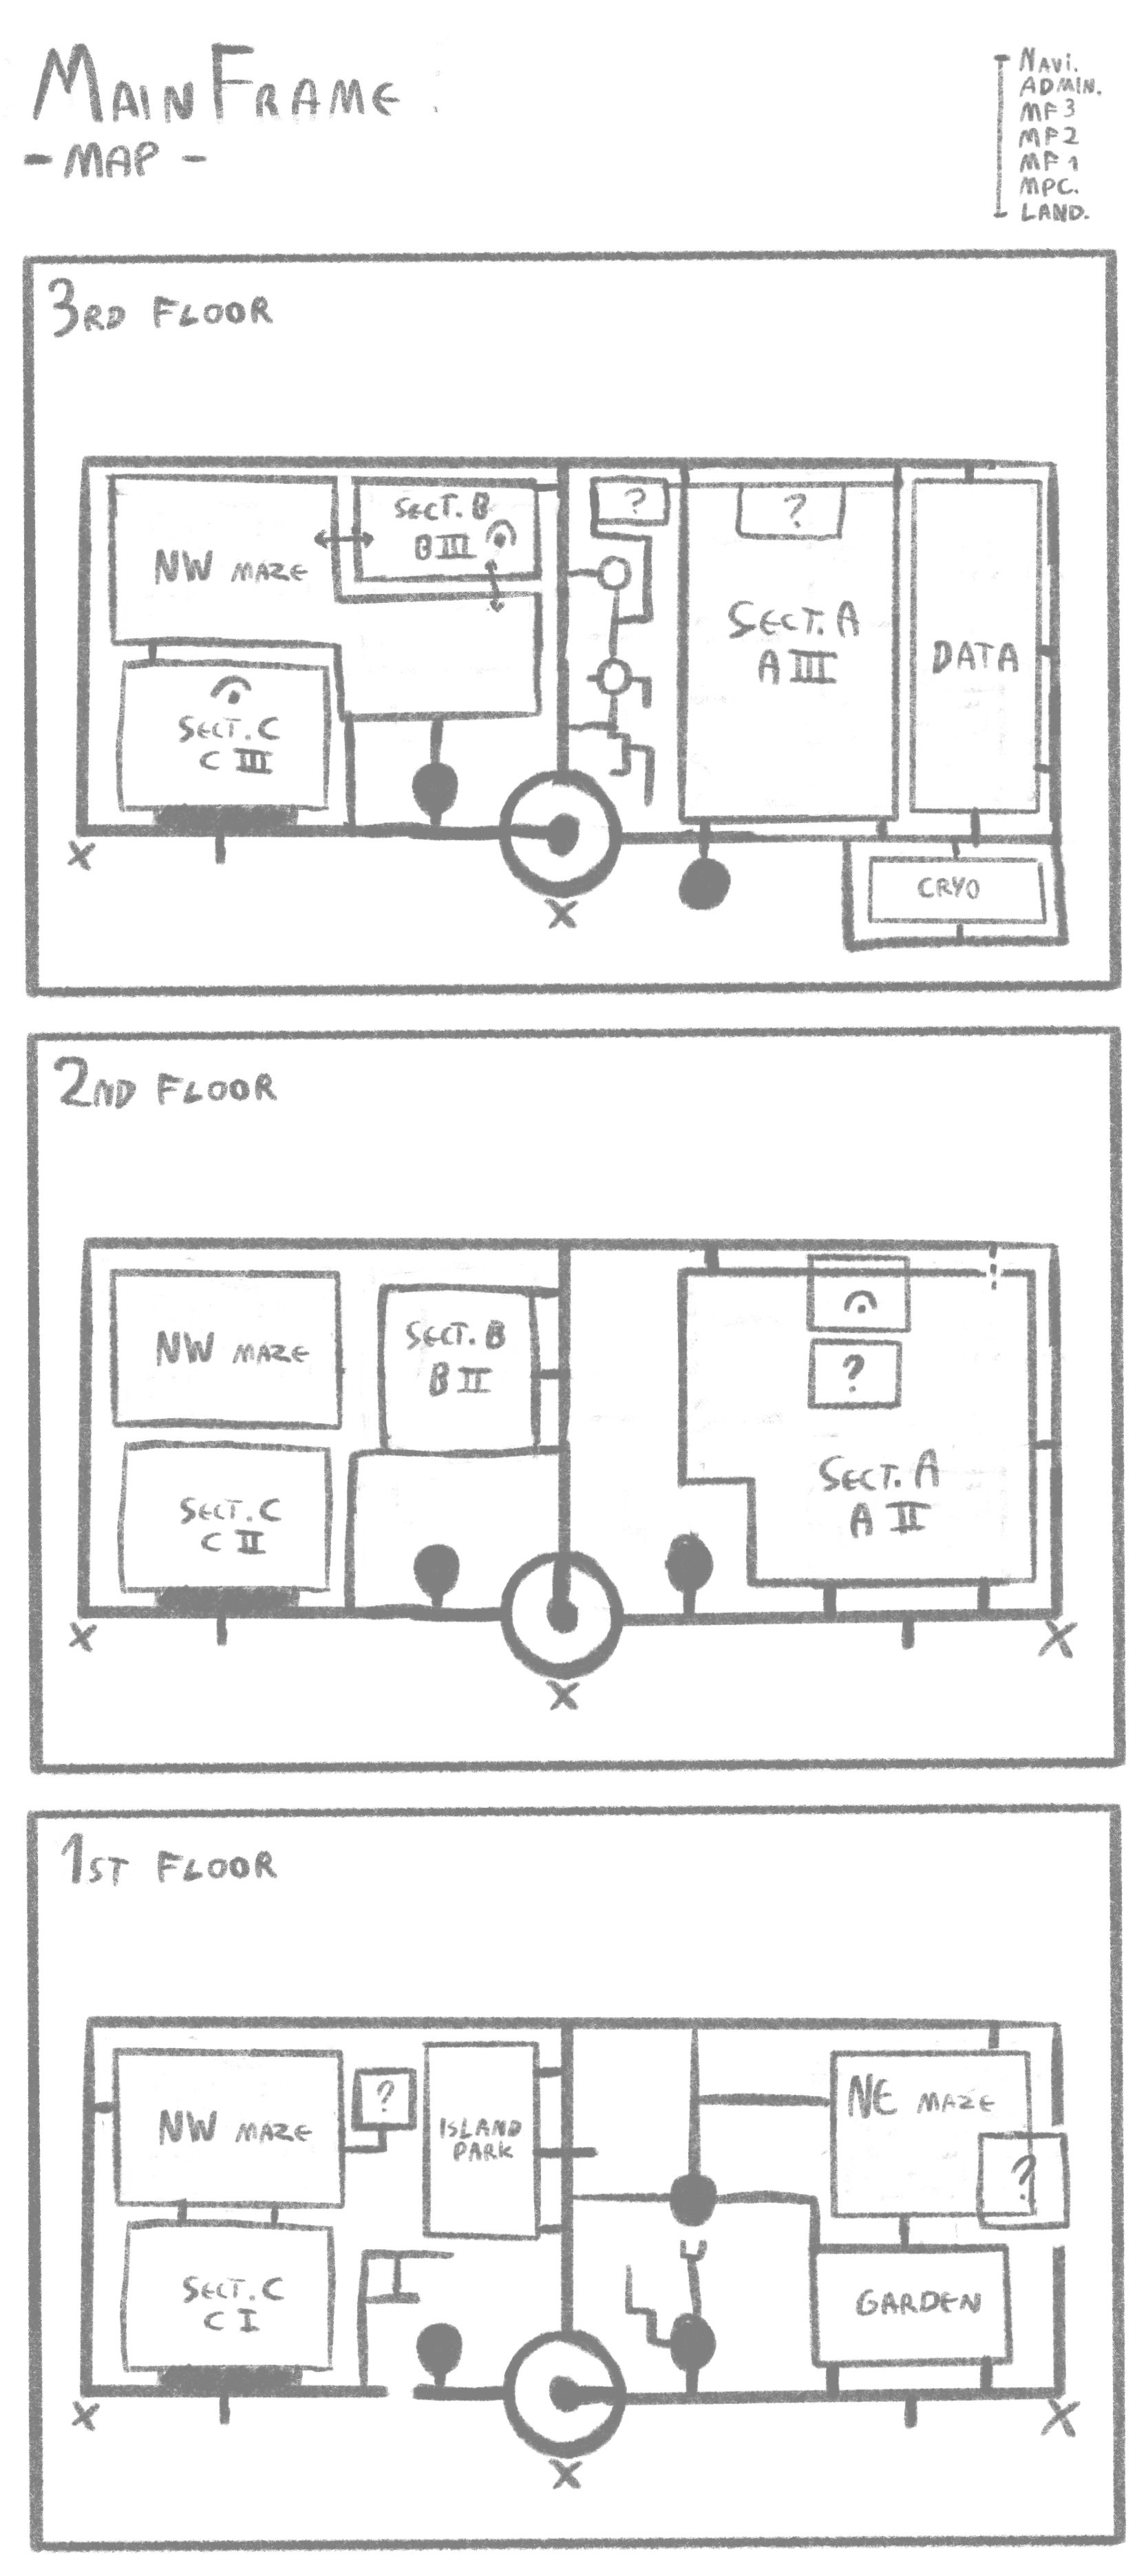 MAINFRAME
- MAP -
NAVI.
ADMIN.
MF3
MF2
MF1
MPC.
LAND.
3RD FLOOR
NW MAZE
SECT. B
B III
?
?
SECT. A
A III
DATA
SECT. C
C III
CRYO
X
X
2ND FLOOR
NW MAZE
SECT. B
B II
?
SECT. A
A II
SECT. C
C II
X
X
X
1ST FLOOR
NW MAZE
?
ISLAND
PARK
NE MAZE
?
SECT. C
C I
GARDEN
X
X
X